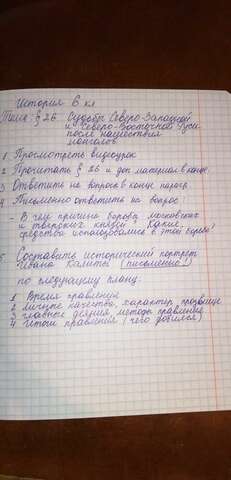 История 6 кл
Тема § 26 Судьбы Северо-Западной
и Северо-Восточной Руси
после нашествия
монголов
1 Просмотреть видеоурок
2 Прочитать § 26 и доп материал в конце
3 Ответить на вопросы в конце парагр
4 Письменно ответить на вопрос!
- В чем причина борьбы московских
и тверских князей Какие
средства использовались в этой борьбе?
5. Составить исторический портрет
Ивана Калиты (письменно!)
по следующему плану.
1 Время правления
2 личные качества, характер, прозвище
3 главные деяния, методы правления
4 Итоги правления (чего добился)